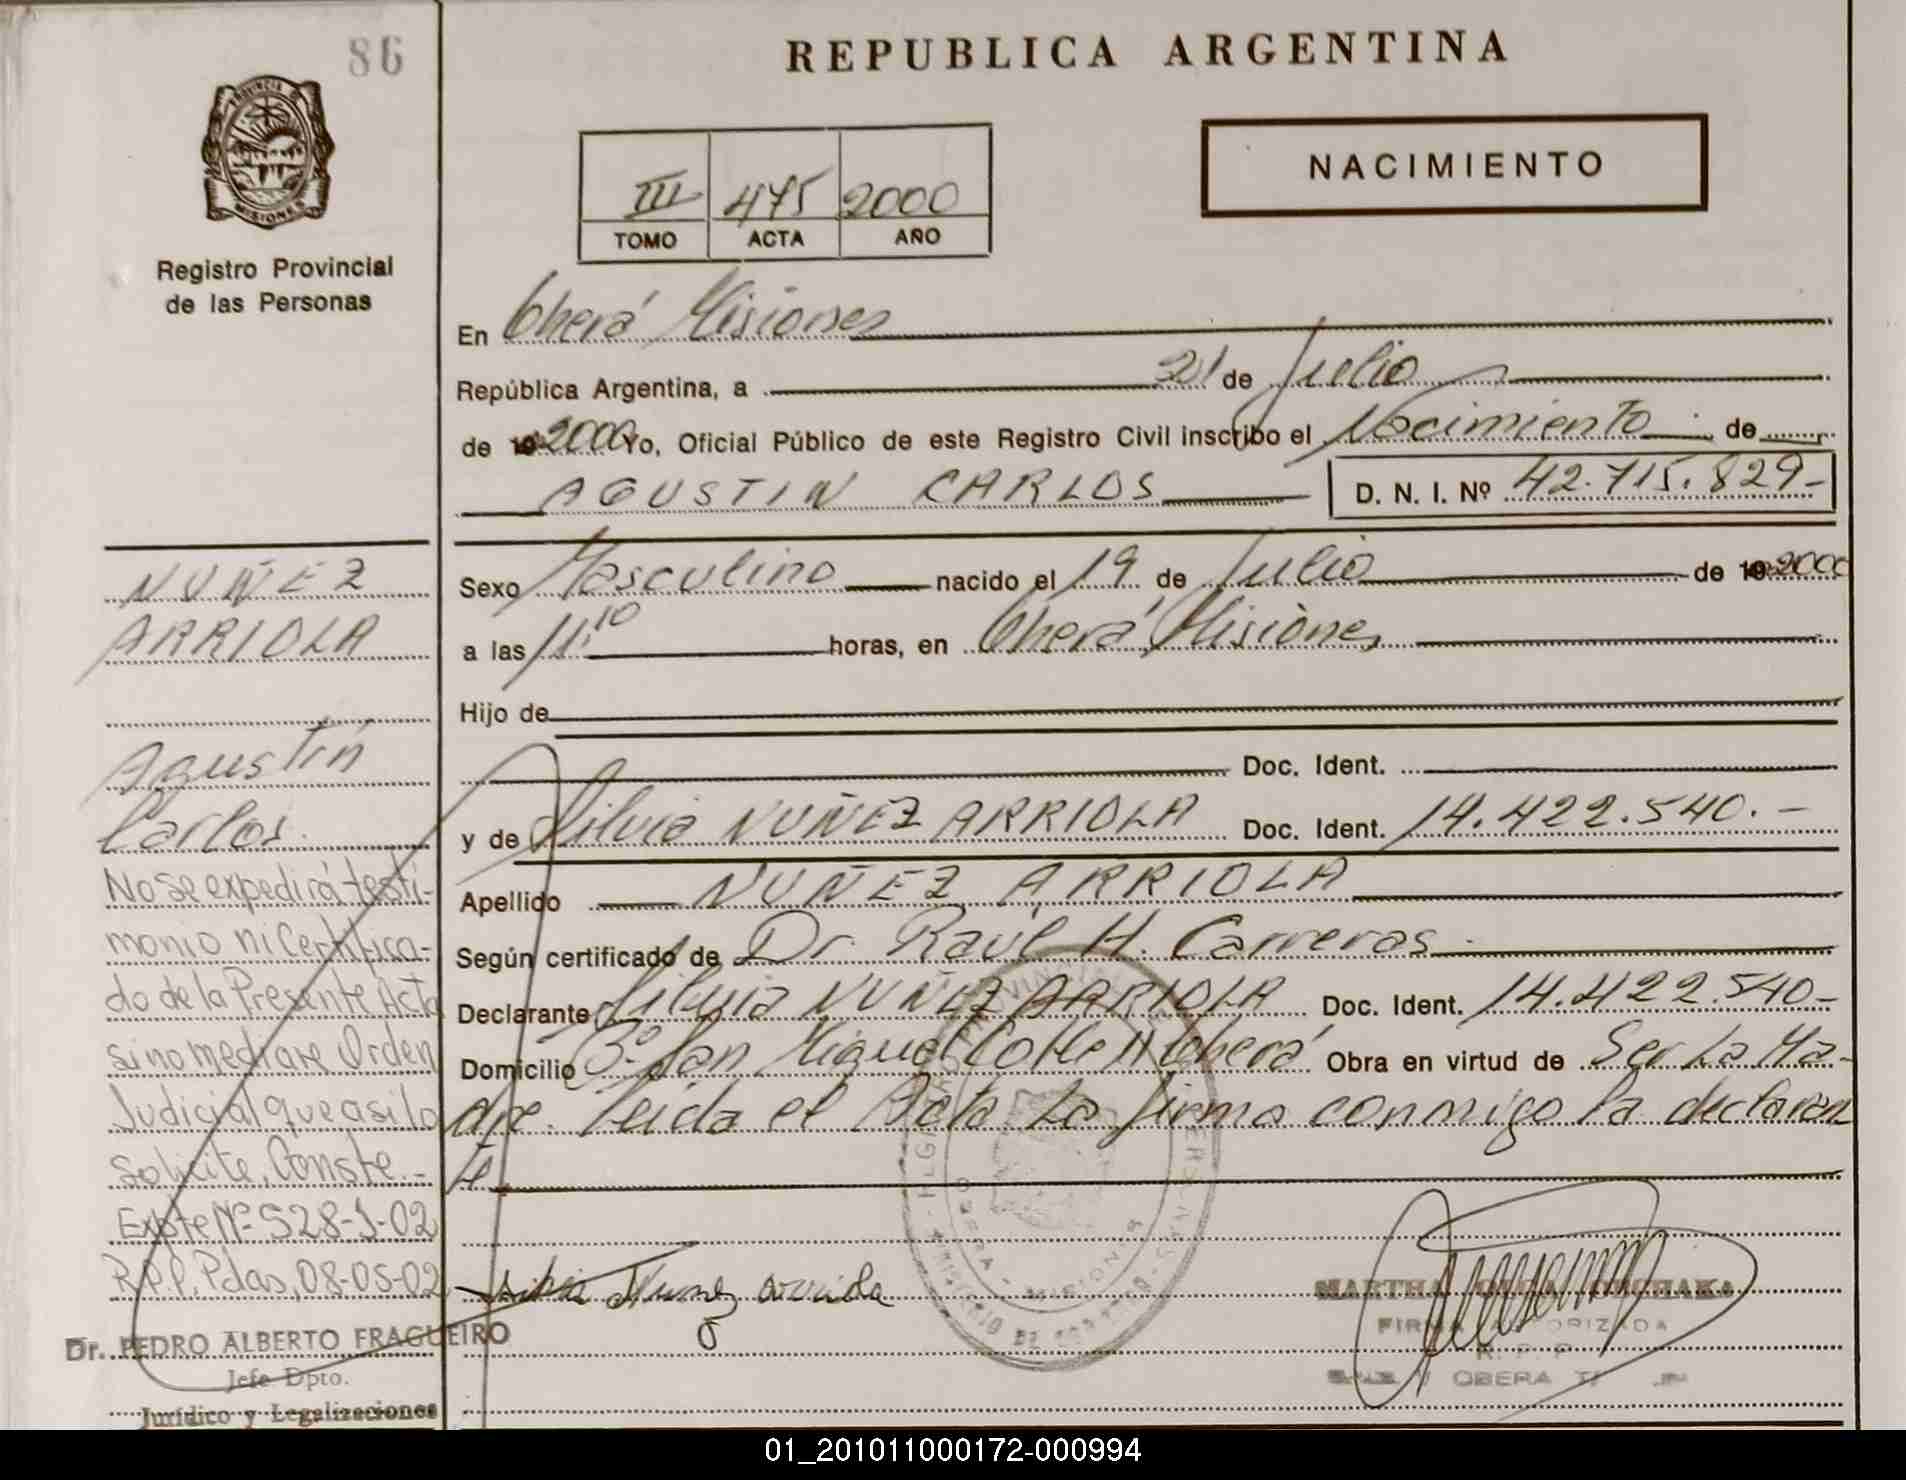 86
REPUBLICA ARGENTINA
PROVINCIA DE
MISIONES
Registro Provincial
de las Personas
III 475 2000
TOMO ACTA AÑO
NACIMIENTO
En Oberá Misiones
República Argentina, a 21 de Julio
de 19 2000 Yo, Oficial Público de este Registro Civil inscribo el Nacimiento de
AGUSTIN CARLOS D. N. I. Nº 42.715.829-
Sexo Masculino nacido el 19 de Julio de 19 2000
a las 11.10 horas, en Oberá, Misiones
Hijo de
Doc. Ident.
y de Silvia NUÑEZ ARRIOLA Doc. Ident. 14.422.540.-
Apellido NUÑEZ ARRIOLA
Según certificado de Dr. Raúl H. Carreras.
Declarante Silvia NUÑEZ ARRIOLA Doc. Ident. 14.422.540-
Domicilio Bº San Miguel Oberá Obra en virtud de Ser La Ma-
dre. Leída el Acta La firma conmigo la declaran
te
NUÑEZ
ARRIOLA
Agustín
Carlos.
No se expedirá testi-
monio ni Certifica-
do de la Presente Acta
si no mediare Orden
Judicial que asi lo
solicite, Conste.-
Expte Nº 528-J-02
R.P.P. Pdas, 08-05-02
Dr. PEDRO ALBERTO FRAGUEIRO
Jefe Dpto.
Jurídico y Legalizaciones
Silvia Nuñez Arriola
MARTHA OLGA
FIRMA AUTORIZADA
R. P. P.
OBERA
OBERA - MISIONES
01_201011000172-000994